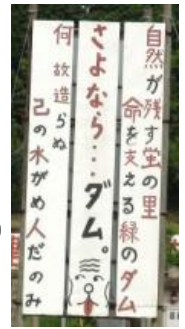 自然が残す蛍の里
命を支える緑のダム
さよなら・・・ダム。
何故造らぬ
己の水がめ人だのみ